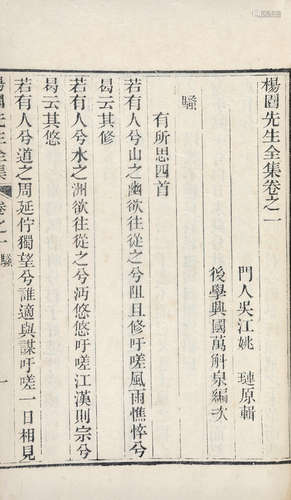 楊園先生全集卷之一
門人吳江姚璉原輯
後學興國萬斛泉編次
騷
有所思四首
若有人兮山之幽欲往從之兮阻且修吁嗟風雨憔悴兮
曷云其修
若有人兮水之洲欲往從之兮沔悠悠吁嗟江漢則宗兮
曷云其悠
若有人兮道之周延佇獨望兮誰適與謀吁嗟一日相見
楊園先生全集 卷之一 騷 一